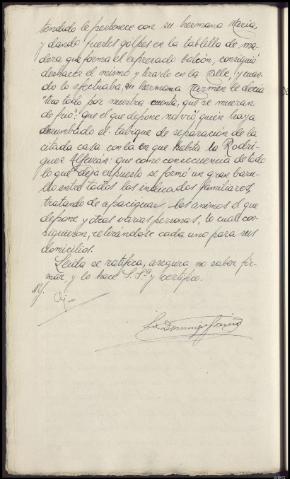 tendido le pertenece con su hermana María,
y dando fuertes golpes en la tablilla de ma-
dera que forma el expresado balcón, consiguió
deshacer el mismo y tirarlo en la calle, y cuan-
do lo efectuaba, su hermana Carmen le decía
"tira todo por nuestra cuenta, que se mueran
de frío"; que el que depone no vió quien haya
derrumbado el tabique de separación de la
citada casa con la en que habita la Rodrí-
guez ; que como consecuencia de todo
lo que deja expuesto se formó un gran baru-
llo entre todos los indicados familiares,
tratando de apaciguar los ánimos el que
depone y otras varias personas, lo cual con-
siguieron, retirándose cada uno para sus
domicilios.
Leída se ratifica, asegura no saber fir-
mar, y lo hace S.Sª y certifico.